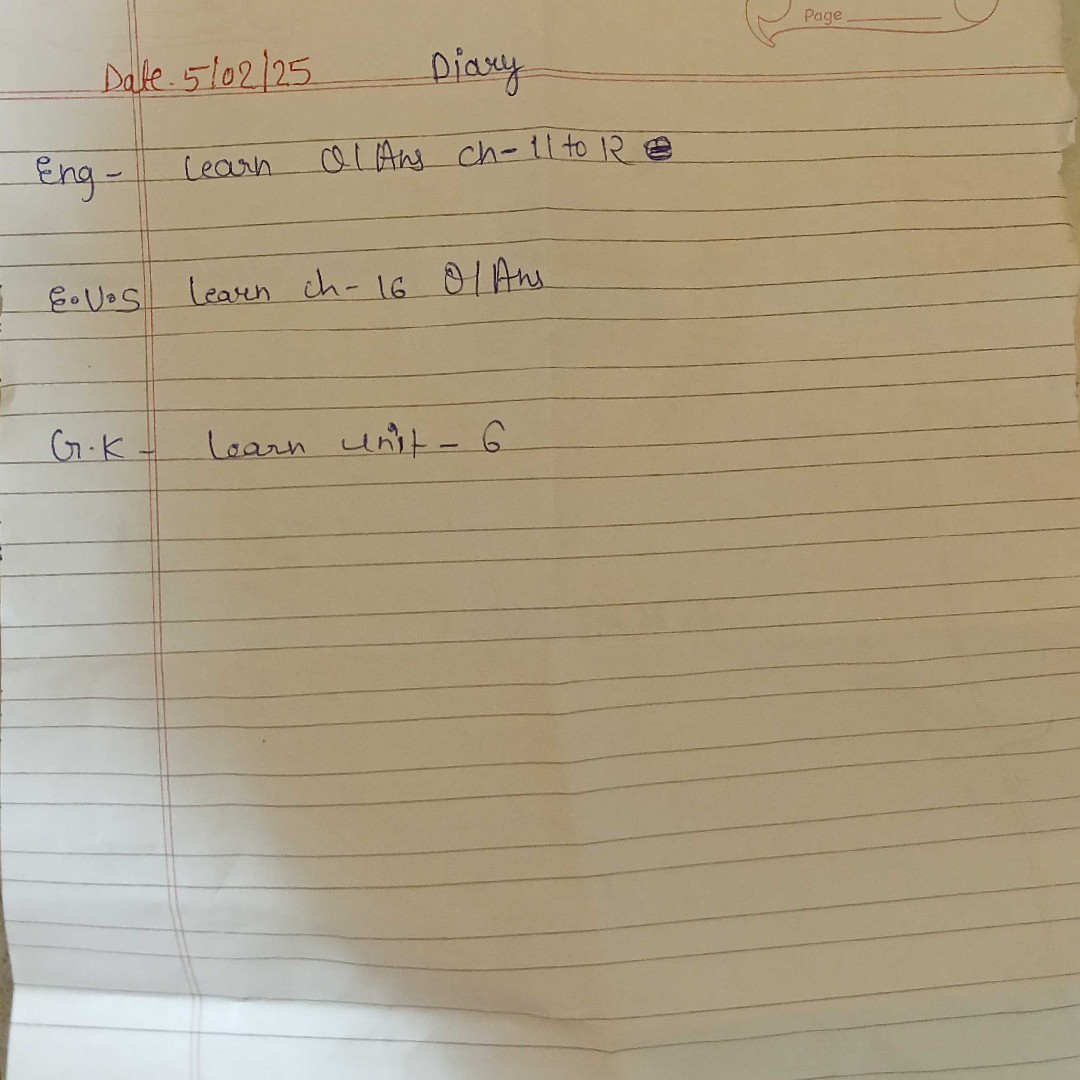 Page
Date. 5/02/25 Diary
Eng - learn Q/Ans ch- 11 to 12
E.V.S learn ch- 16 Q/Ans
G.K - learn unit - 6